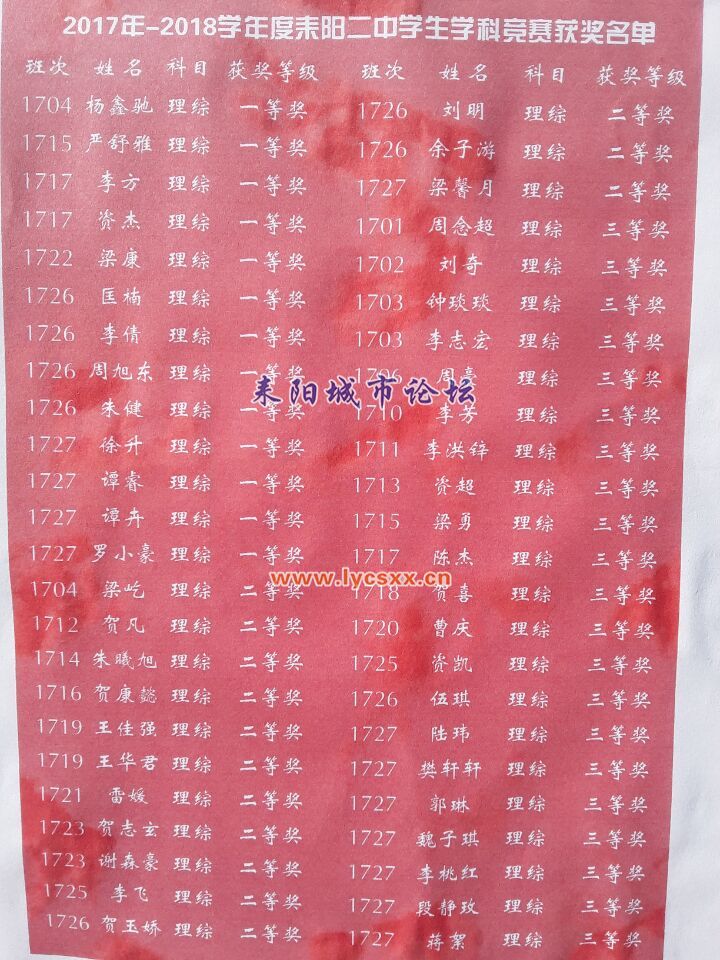 2017年-2018学年度耒阳二中学生学科竞赛获奖名单
班次 姓名 科目 获奖等级 班次 姓名 科目 获奖等级
1704 杨鑫驰 理综 一等奖 1726 刘明 理综 二等奖
1715 严舒雅 理综 一等奖 1726 余子游 理综 二等奖
1717 李方 理综 一等奖 1727 梁馨月 理综 二等奖
1717 资杰 理综 一等奖 1701 周念超 理综 三等奖
1722 梁康 理综 一等奖 1702 刘奇 理综 三等奖
1726 匡楠 理综 一等奖 1703 钟琰琰 理综 三等奖
1726 李倩 理综 一等奖 1703 李志宏 理综 三等奖
1726 周旭东 理综 一等奖 理综 三等奖
耒阳城市论坛
1726 朱健 理综 一等奖 1710 李芳 理综 三等奖
1727 徐升 理综 一等奖 1711 李洪锌 理综 三等奖
1727 谭睿 理综 一等奖 1713 资超 理综 三等奖
1727 谭卉 理综 一等奖 1715 梁勇 理综 三等奖
1727 罗小豪 理综 一等奖 1717 陈杰 理综 三等奖
www.lycsxx.cn
1704 梁屹 理综 二等奖 1718 贺喜 理综 三等奖
1712 贺凡 理综 二等奖 1720 曹庆 理综 三等奖
1714 朱曦旭 理综 二等奖 1725 资凯 理综 三等奖
1716 贺康懿 理综 二等奖 1726 伍琪 理综 三等奖
1719 王佳强 理综 二等奖 1727 陆玮 理综 三等奖
1719 王华君 理综 二等奖 1727 樊轩轩 理综 三等奖
1721 雷媛 理综 二等奖 1727 郭琳 理综 三等奖
1723 贺志玄 理综 二等奖 1727 魏子琪 理综 三等奖
1723 谢森豪 理综 二等奖 1727 李桃红 理综 三等奖
1725 李飞 理综 二等奖 1727 段静玫 理综 三等奖
1726 贺玉娇 理综 二等奖 1727 蒋絮 理综 三等奖